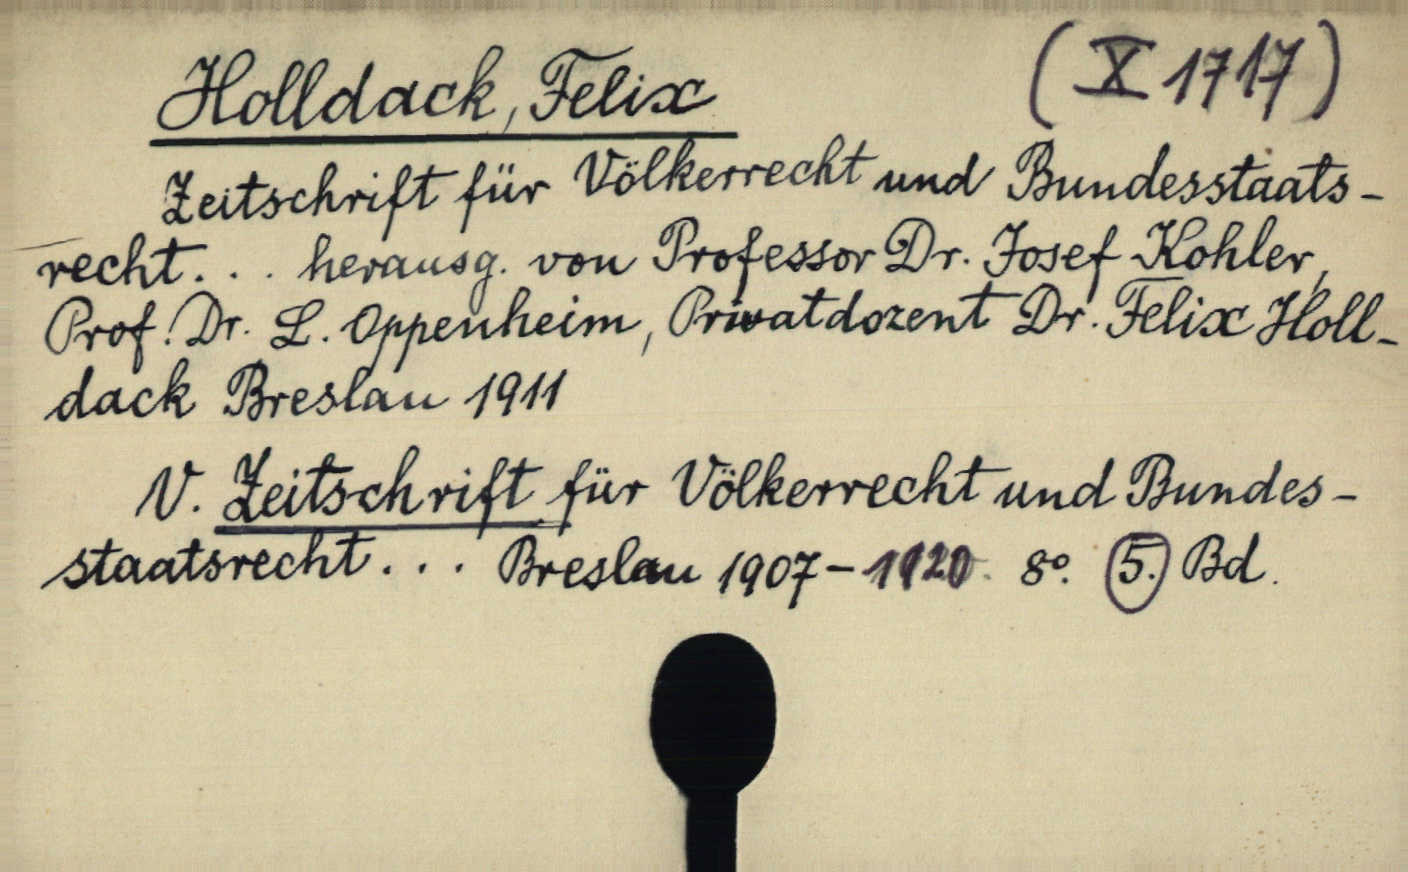 Holldack, Felix (X 1717)
Zeitschrift für Völkerrecht und Bundesstaats-
recht... herausg. von Professor Dr. Josef Kohler,
Prof. Dr. L. Oppenheim, Privatdozent Dr. Felix Holl-
dack Breslau 1911
V. Zeitschrift für Völkerrecht und Bundes-
staatsrecht... Breslau 1907-1920. 8°. 5. Bd.